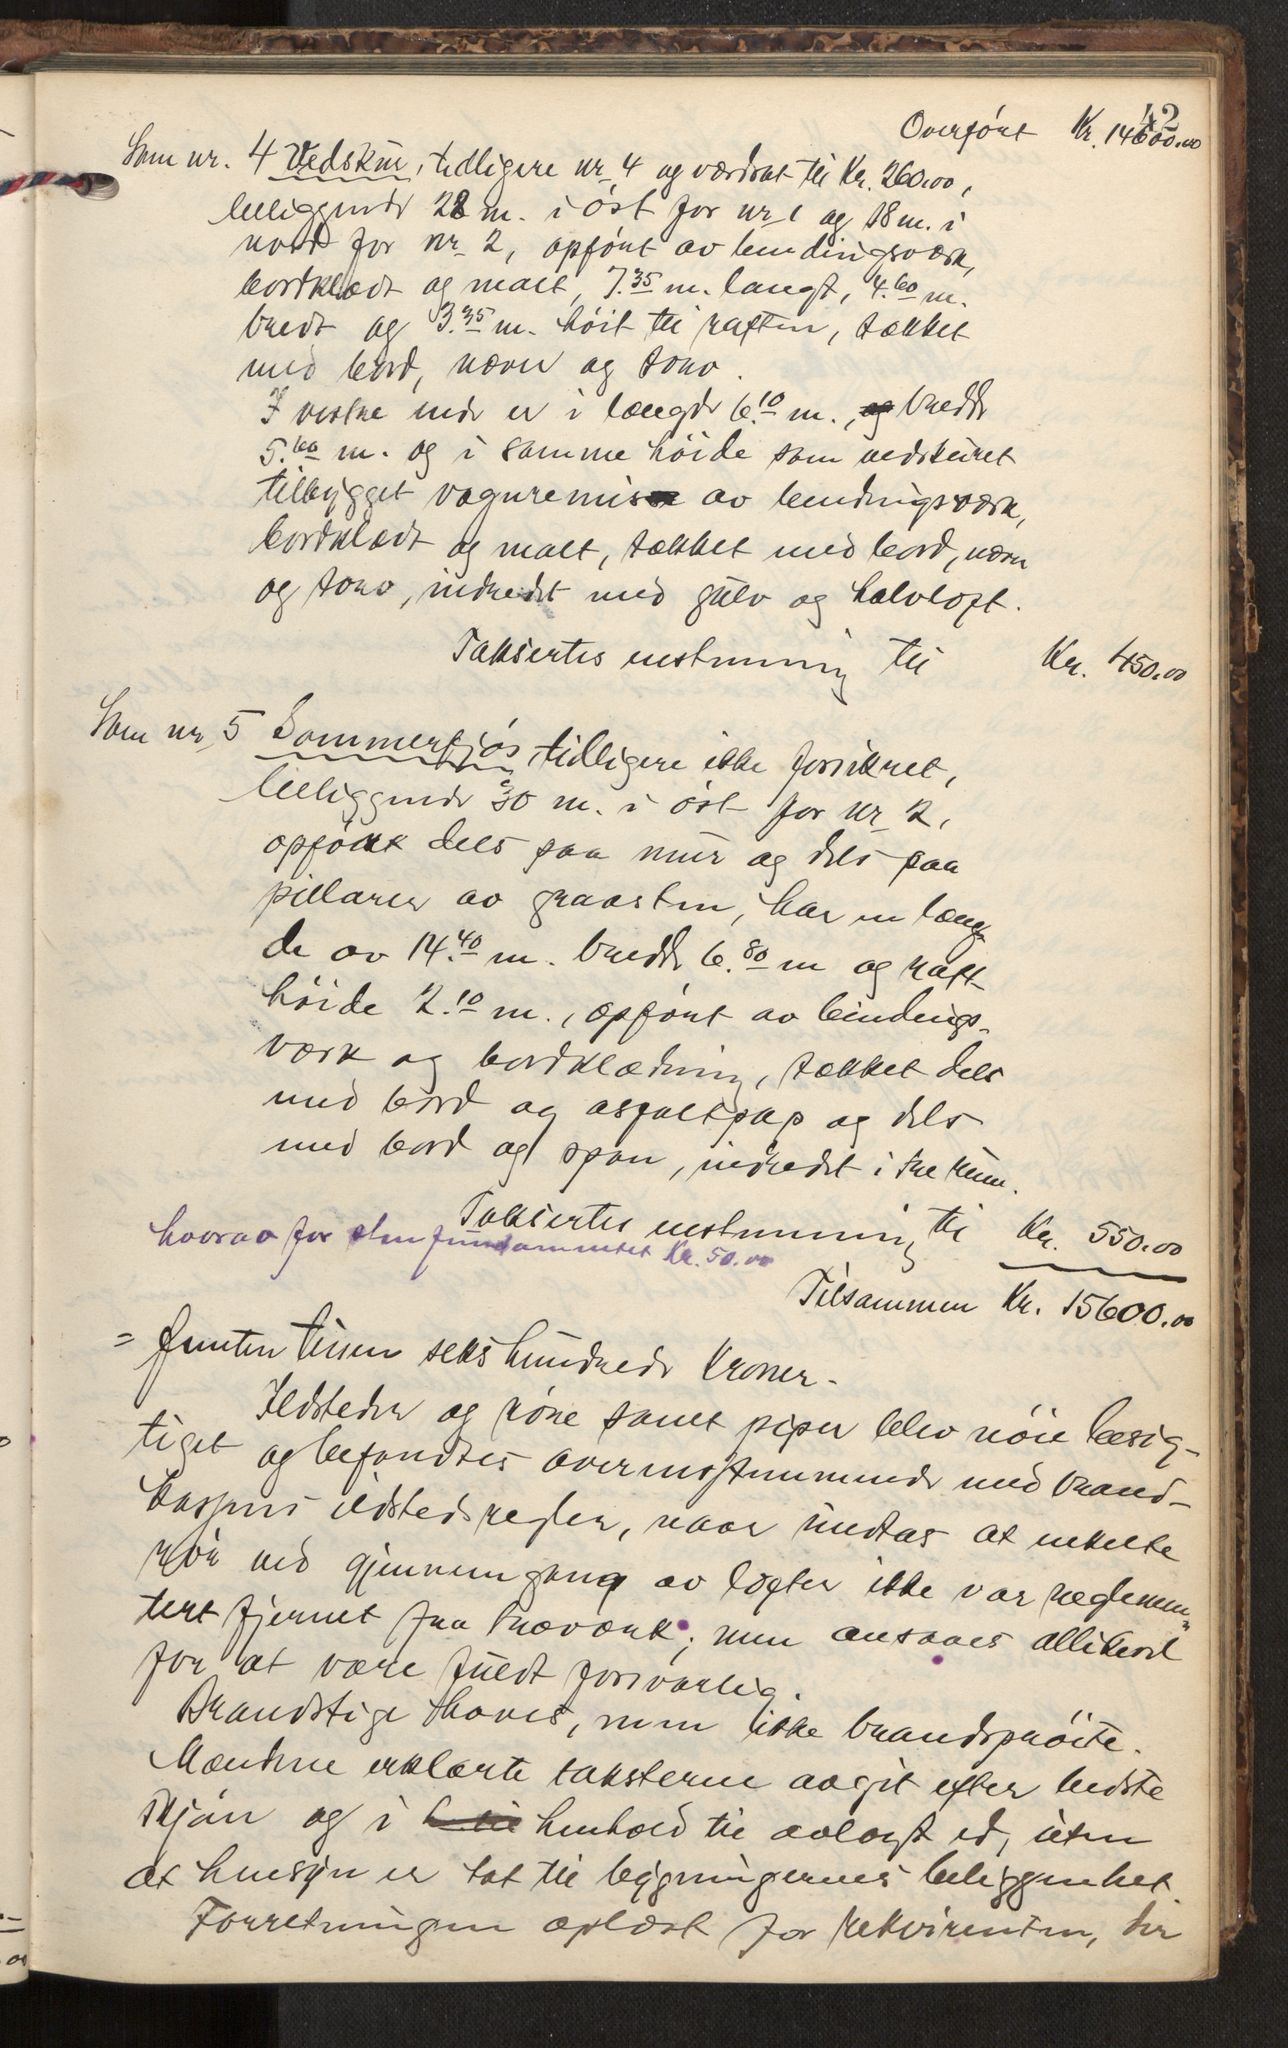 42
Overført Kr. 14600.00
Som nr. 4 Vedskur, tidligere nr. 4 og værdsat til Kr. 260.00,
beliggende 22 m. i øst for nr. 1 og 18 m. i
nord for nr. 2, opført av bindingsværk,
bordklædt og malt, 7.35 m. langt, 4.60 m.
bredt og 3.35 m. høit til raften, tækket
med bord, næver og torv.
I vestre ende er i længde 6.10 m., og bredde
5.60 m. og i samme høide som vedskuret
tilbygget vognremise av bindingsværk,
bordklædt og malt, tækket med bord, næver
og torv, indredet med gulv og halvloft.
Taksertes enstemmig til Kr. 450.00
Som nr. 5 Sommerfjøs, tidligere ikke forsikret,
beliggende 30 m. i øst for nr. 2,
opført dels paa mur og dels paa
pillarer av graasten, har en læng-
de av 14.40 m. bredde 6.80 m og raft-
høide 2.10 m., opført av bindings-
værk og bordklædning, tækket dels
med bord og asfaltpap og dels
med bord og spon, indredet i tre rum.
Taksertes enstemmig til Kr. 550.00
hvorav for stenfundamentet Kr. 50.00
Tilsammen Kr. 15600.00
= femten tusen seks hundrede Kroner.
Ildsteder og røre samt piper blev nøie besig-
tiget og befandtes overensstemmende med brand-
kassens ildstedsregler, naar undtas at enkelte
rør ved gjennemgang av lofter ikke var reglemen-
tert fjernet fra træværk; men ansaaes allikevel
for at være fuldt forsvarlig.
Brandstige haves, men ikke brandsprøite.
Mændene erklærte taksterne avgit efter bedste
skjøn og i henhold til avlagt ed, uten
at hensyn er tat til bygningernes beliggenhet.
Forretningen oplæst for rekvirenten, der